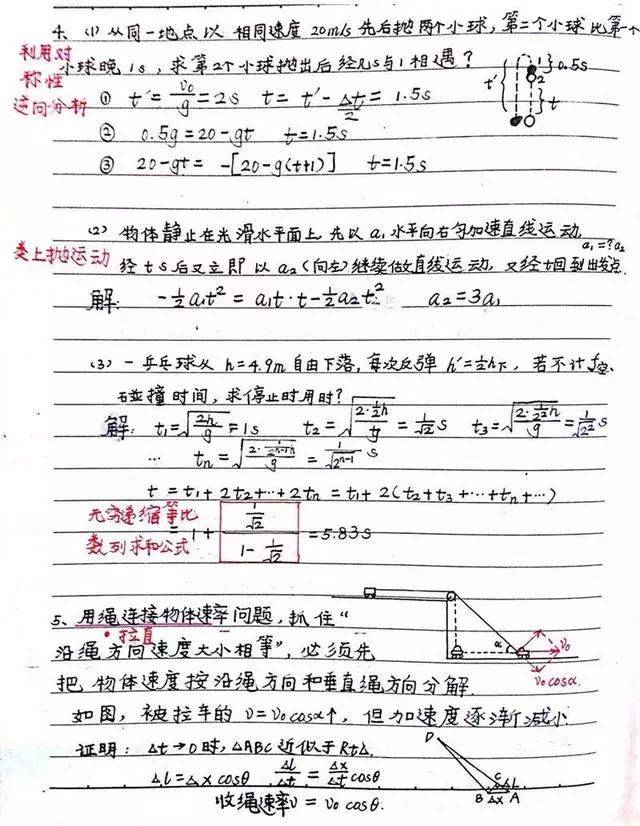 4、(1) 从同一地点以 相同速度 20m/s 先后抛两个小球, 第二个小球比第一个
利用对称性
逆向分析
小球晚 1s, 求第2个小球抛出后 经几s与1相遇?
① t' = v₀/g = 2s t = t' - Δt/2 = 1.5s
② 0.5g = 20 - gt t = 1.5s
③ 20 - gt = -[20 - g(t+1)] t = 1.5s
1 0.5s
2
t'
t
(2) 物体静止在光滑水平面上 先以 a₁ 水平向右匀加速直线运动,
a₁=?a₂
类上抛运动
经 t s 后又立即 以 a₂ (向左) 继续做直线运动, 又经 t回到出发点.
解: -½a₁t² = a₁t·t - ½a₂t² a₂ = 3a₁
(3) 一乒乓球从 h=4.9m 自由下落, 每次反弹 h'=½h下, 若不计f空、
碰撞时间, 求停止时用时?
解: t₁ = √(2h/g) = 1s t₂ = √(2·½h/g) = 1/√2 s t₃ = √(2·1/2² h/g) = 1/√2² s
… tₙ = √(2·1/2ⁿ⁻¹ h/g) = 1/√2ⁿ⁻¹ s
t = t₁ + 2t₂ + … + 2tₙ = t₁ + 2(t₂ + t₃ + … + tₙ + …)
无穷递缩等比
数列求和公式
= 1 + (1/√2)/(1 - 1/√2) = 5.83s
5、用绳连接物体速率问题, 抓住“
拉直
沿绳方向速度大小相等”, 必须先
α v₀
v₀cosα.
把 物体速度按沿绳方向和垂直绳方向分解.
如图, 被拉车的 v = v₀cosα↑, 但加速度逐渐减小
证明: Δt→0时, △ABC 近似于Rt△.
D
ΔL = Δx cosθ ΔL/Δt = Δx/Δt cosθ
C ΔL
B Δx A
收绳速率v = v₀ cosθ.